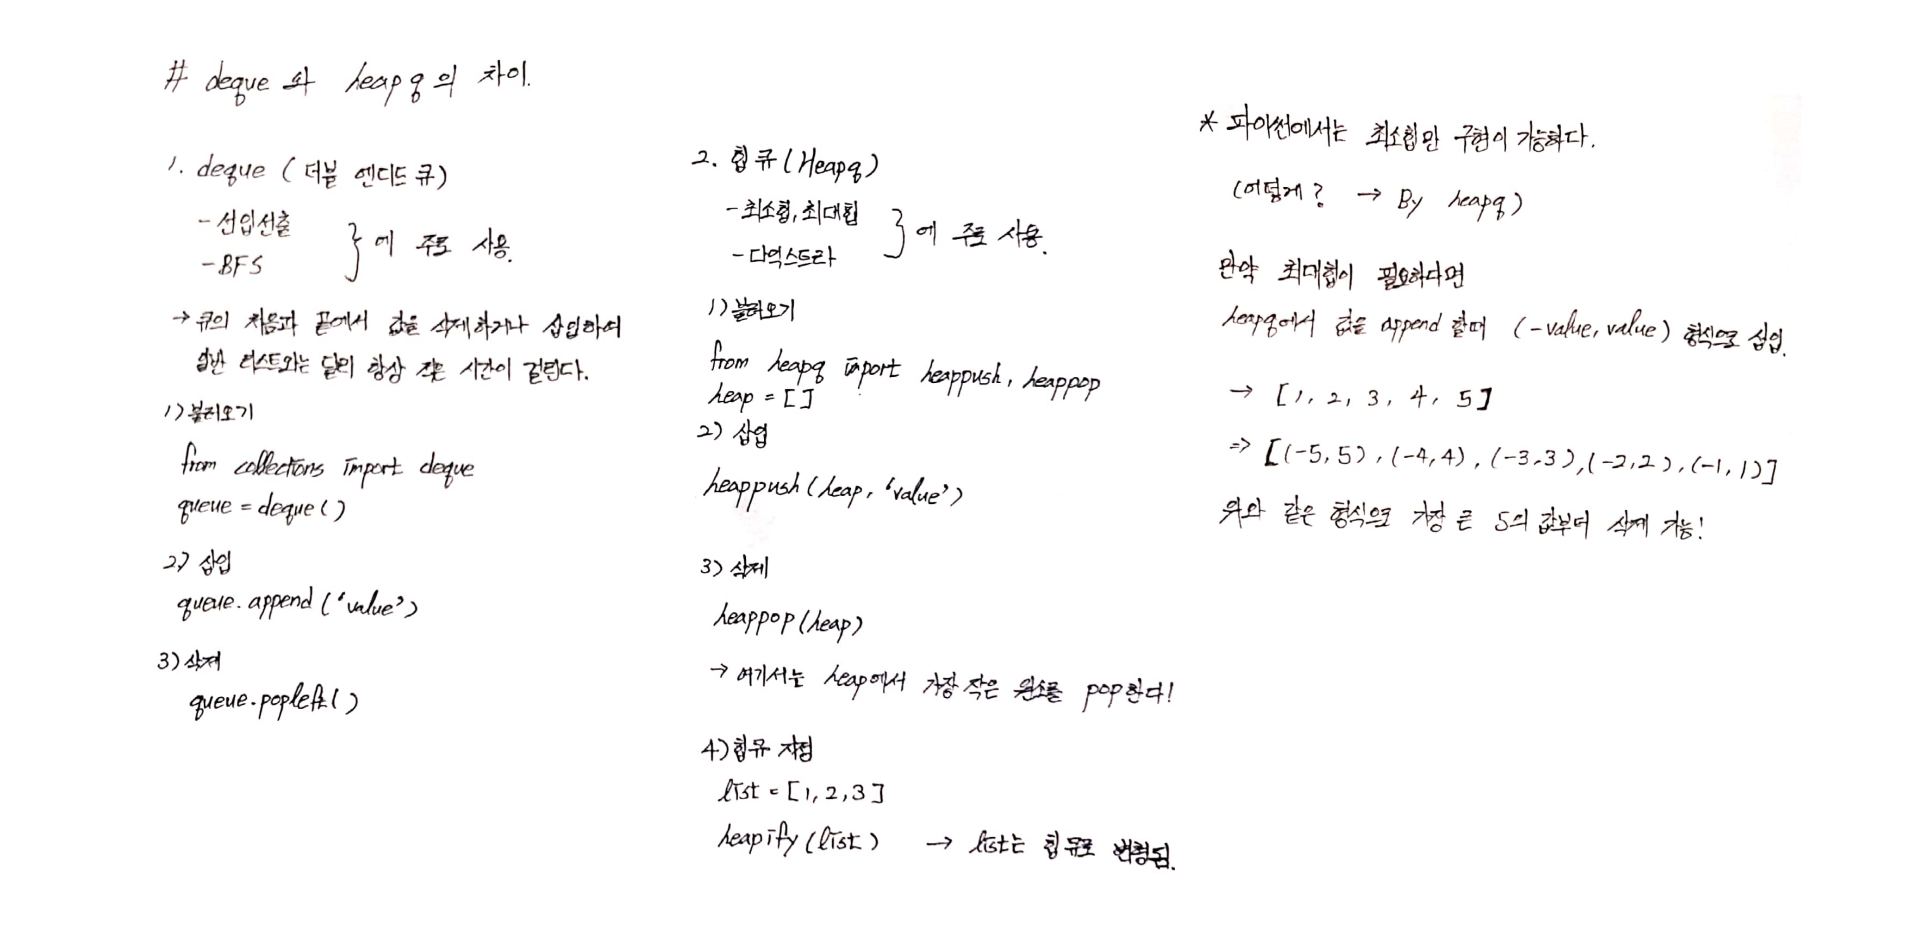 # deque 와 heapq의 차이.
1. deque (더블 엔디드 큐)
- 선입선출
- BFS
} 에 주로 사용.
→ 큐의 처음과 끝에서 값을 삭제하거나 삽입하여
일반 리스트와는 달리 항상 작은 시간이 걸린다.
1) 불러오기
from collections import deque
queue = deque()
2) 삽입
queue.append('value')
3) 삭제
queue.popleft()
2. 힙큐(Heapq)
- 최소힙, 최대힙
- 다익스트라
} 에 주로 사용.
1) 불러오기
from heapq import heappush, heappop
heap = []
2) 삽입
heappush(heap, 'value')
3) 삭제
heappop(heap)
→ 여기서는 heap에서 가장 작은 원소를 pop한다!
4) 힙큐 지정
list = [1, 2, 3]
heapify(list) → list는 힙큐로 변형됨.
* 파이썬에서는 최소힙만 구현이 가능하다.
(어떻게? → By heapq)
만약 최대힙이 필요하다면
heapq에서 값을 append 할때 (-value, value) 형식으로 삽입.
→ [1, 2, 3, 4, 5]
⇒ [(-5, 5), (-4, 4), (-3, 3), (-2, 2), (-1, 1)]
위와 같은 형식으로 가장 큰 5의 값부터 삭제 가능!